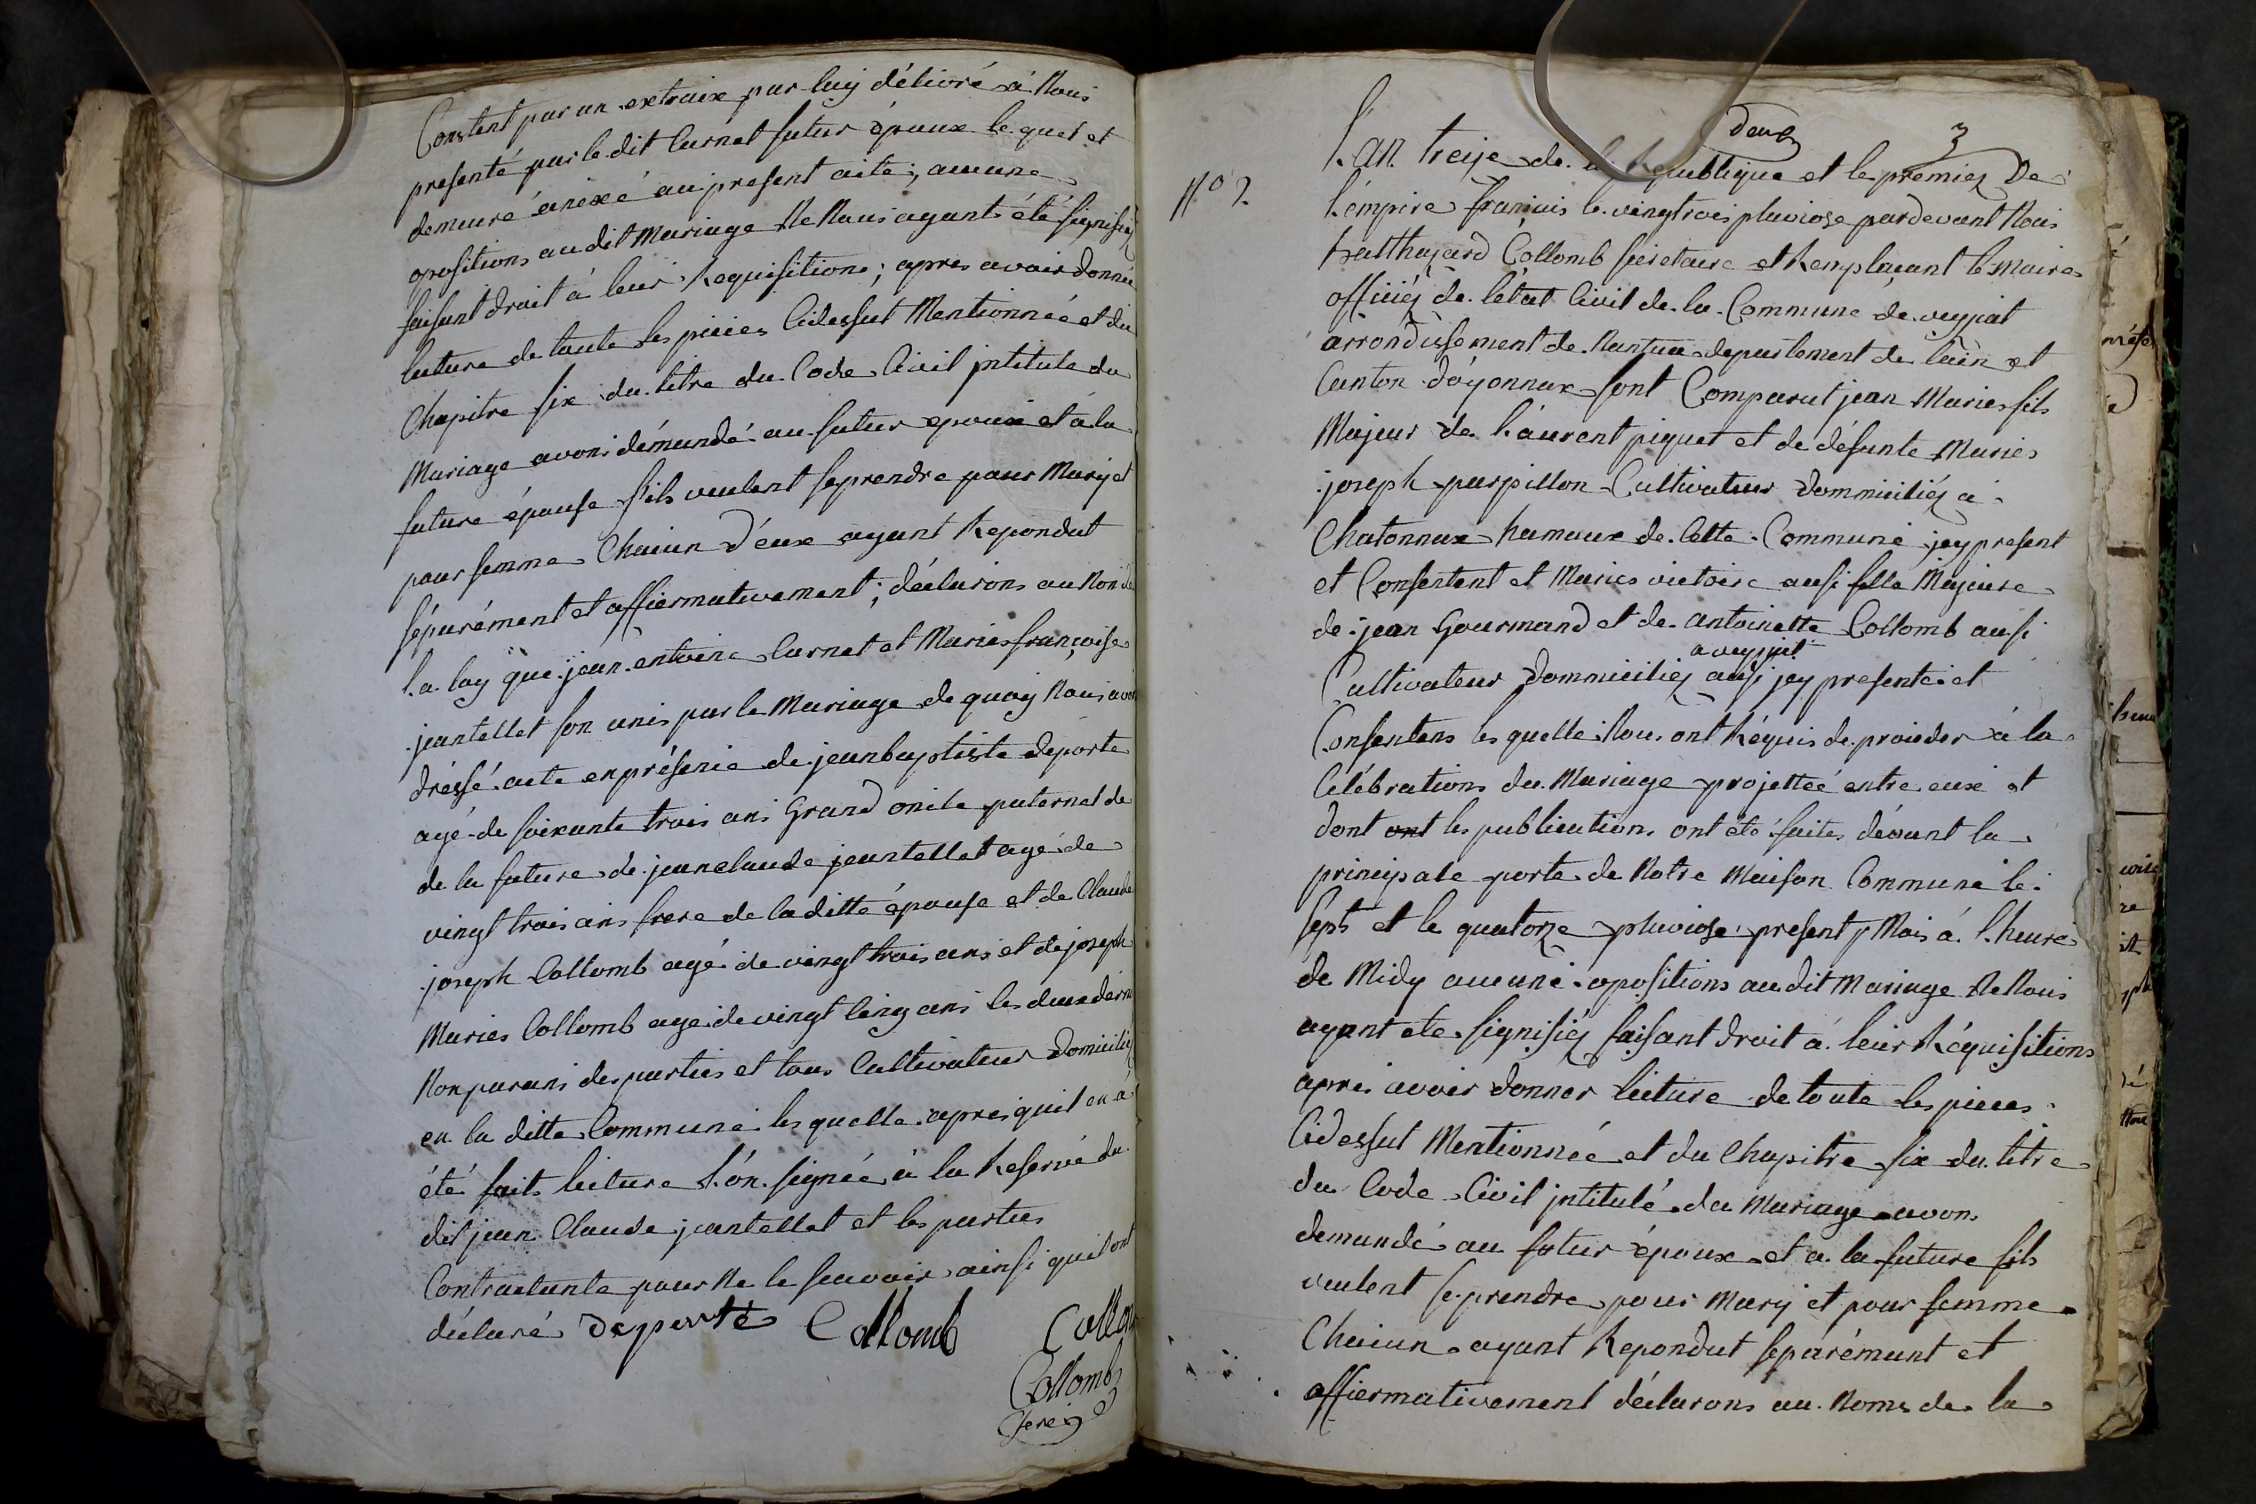 Constent par un extraix par luy délivré à Nous
presenté par le dit Curnet futur épaux le quel et
demeuré anexé au present acte; aucune
opositions au dit Mariage Ne Nous ayants été signifiez
faisant droit à leur Requisitions; apres avoir donnée
lecture de toute les pieces Cidessut Mentionnée et du
Chapitre six du titre du Code Civil jntitule du
Mariage avons démandé au futur epoux et à la
future épouse sils veulent seprendre pour Mary et
pour femme Chacun d'éux ayant Repondut
séparément et affiermativement; déclarons au Nom de
la loy que jean antoine Curnet et Maries françoise
jeantellet son unis par le Mariage de quoy Nous avons
dréssé acte en présence de jeanbaptiste deporte
agé de soixante trois ans Grand oncle paternel de
de la future de jean claude jeantellet agé de
vingt trois ans frere de laditte épouse et de Claude
joseph Collomb agé de vingt trois ans et de joseph
Maries Collomb agé de vingt Cinq ans les deux derni
Non parans des parties et tous Cultivateur Domiciliez
en la ditte Commune les quelle apres quil en a
été fait lecture l'ón signée à la Reserve du
dit jean Claude jeantellet et les parties
Contractante pour Ne le scavoir ainsi quil ont
déclaré deporte Collomb Collom
Collomb
deux 3
L'an treize de la Republique et le premier De
Nº 2 l'émpire français le vingtrois pluviose pardevant Nous
Balthazard Collomb secretaire et Remplaçant le Maire
officiéz de l'état Civil de la Commune de veyziat
arrondissement de Nantua departement de lain et
Canton dóyonnax sont Comparut jean Maries fils
Majeur de laurent piquet et de défunte Maries
joseph parpillon Cultivateur dommiciliéz a
Chatonnax hamaux de Cette Commune jcy present
et Consentent et Maries victoire ausi fille Majeure
de jean Gourmand et de antoinette Collomb ausi
a veyziat
Cultivateur Dommiciliez ausi jcy presente et
Consentens les quelle Nous ont Réquis de procéder à la
Célébrations du Mariage projettée entre eux et
dont ont les publications ont été faites dévant la
principale porte de Notre Maison Commune le
sept et le quatorze pluviose present Mois à l'heure
de Midy aucune opositions au dit Mariage Ne Nous
ayant ete signifiéz faisant droit à leur Réquisitions
apres avoir donner lecture de toute les pieces
Cidessut Mentionnée et du Chapitre six du titre
du Code Civil jntitulé du Mariage avons
demandé au futur époux et a la future sils
veulent seprendre pour Mary et pour femme
Chacun ayant Repondut séparémant et
affiermativement déclarons au Nome de la